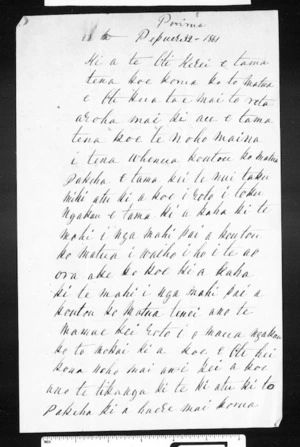 Poirua
Pepuere 22 - 1861
Ki a te Oti Kerei e tama
tena koe korua ko to matua
e Oti kua tae mai to reta
aroha mai ki au e tama
tena koe te noho maina
i tena whenua koutou ko matua
Pakeha e tama kei te nui taku
mihi atu ki a koe i roto i toku
Ngakau e tama kia kaha ki te
mahi i nga mahi pai a koutou
ko matua i waiho i ho i te ao
ora ake ko koe kia kaha
ki te mahi i nga mahi pai a
koutou ko Matua tenei ano te
mamae kei roto i o maua ngakau
ko to mokai ki a koe e Oti hei
kona noho mai ai kei a koe
ano te tikanga ki te ki atu ki to
Pakeha kia haere mai korua